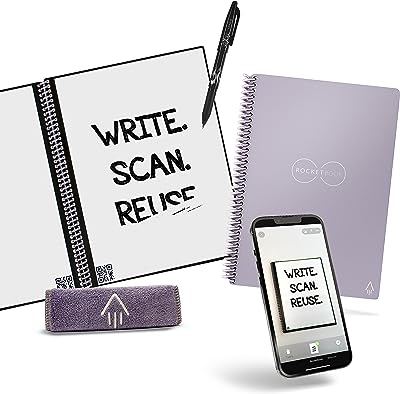 WRITE.
SCAN.
REUSE
ROCKETBOOK
WRITE.
SCAN.
REUSE.